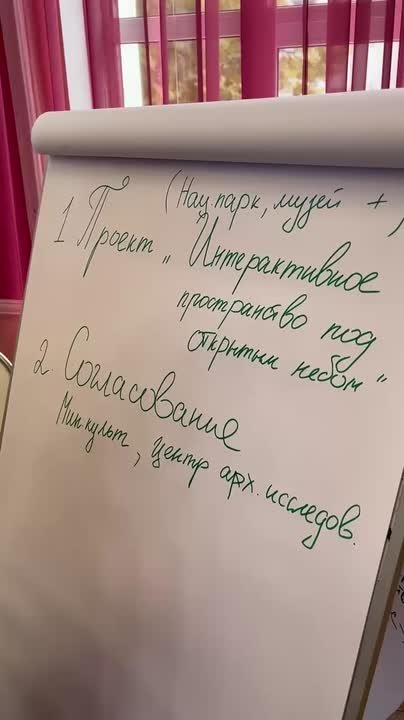 (Нац. парк, музей +)
1 Проект „Интерактивное
пространство под
открытым небом"
2. Согласование
Мин.культ, центр арх. исследов.